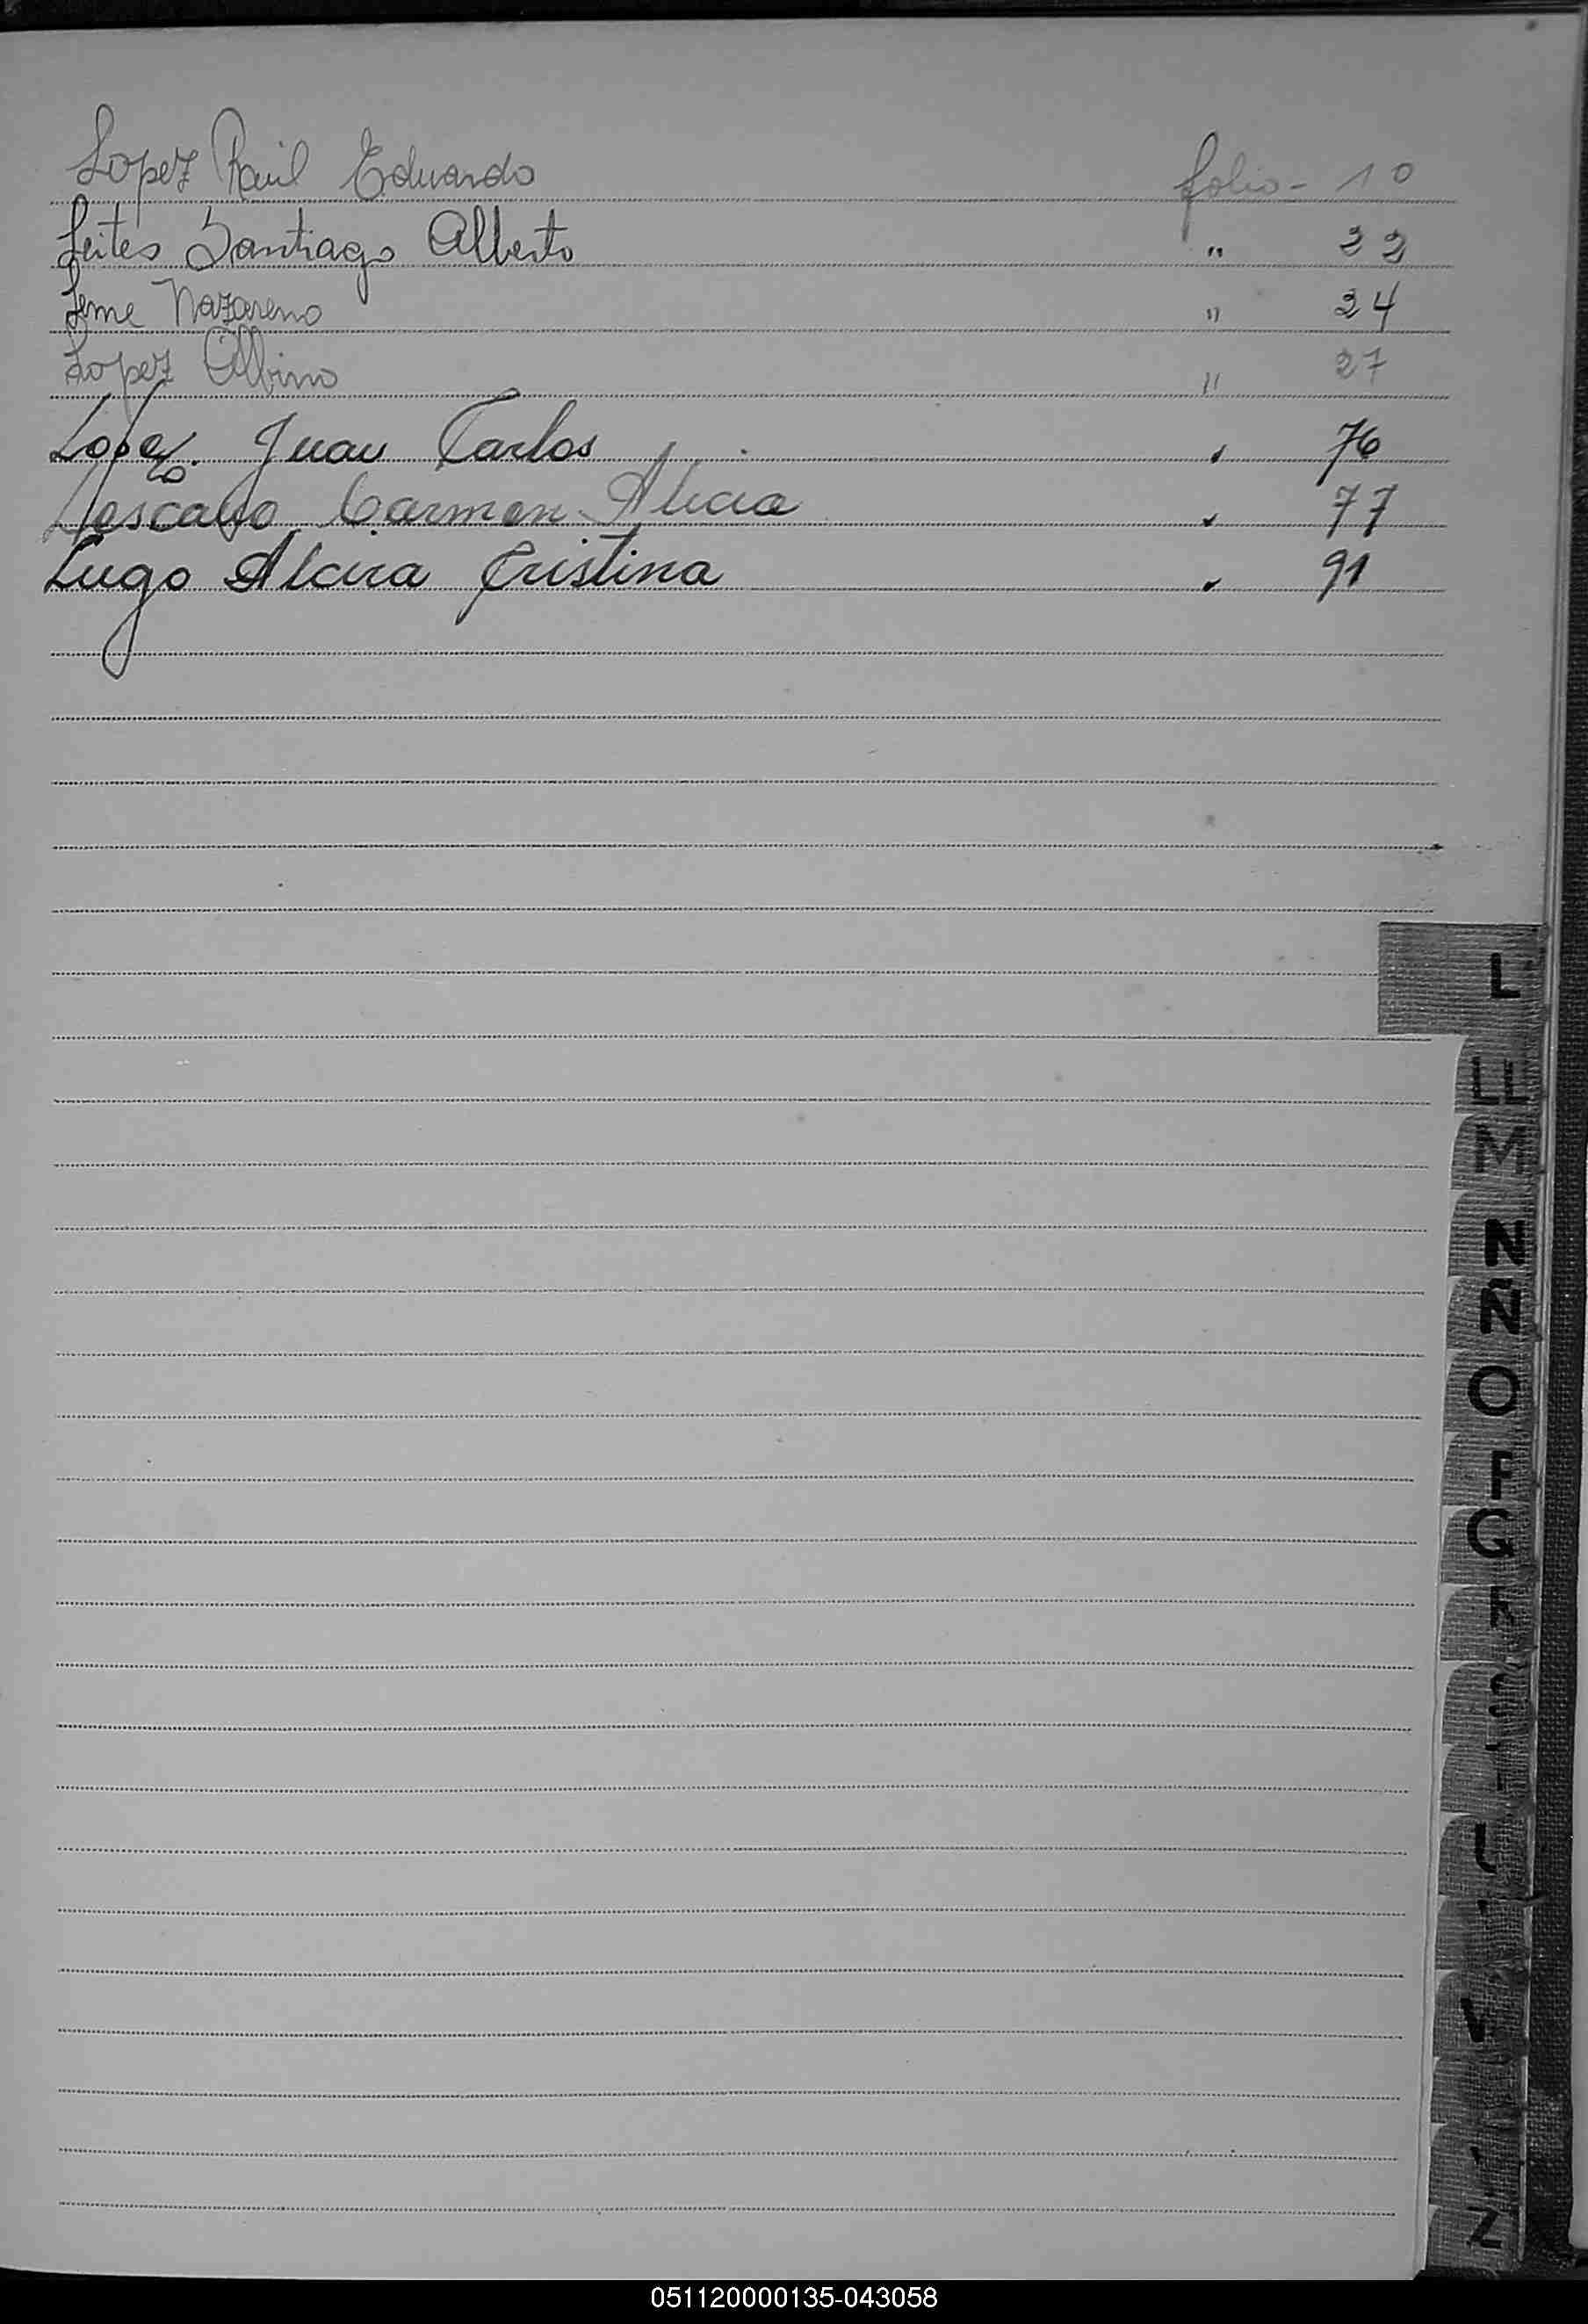 Lopez Raul Eduardo folio - 10
Leites Santiago Alberto " 22
Leme Nazareno " 24
Lopez Albino " 27
Lopez. Juan Carlos " 76
Lescano Carmen Alicia " 77
Lugo Alcira Cristina " 91
L
LL
M
N
Ñ
O
P
Q
R
S
T
V
Z
051120000135-043058